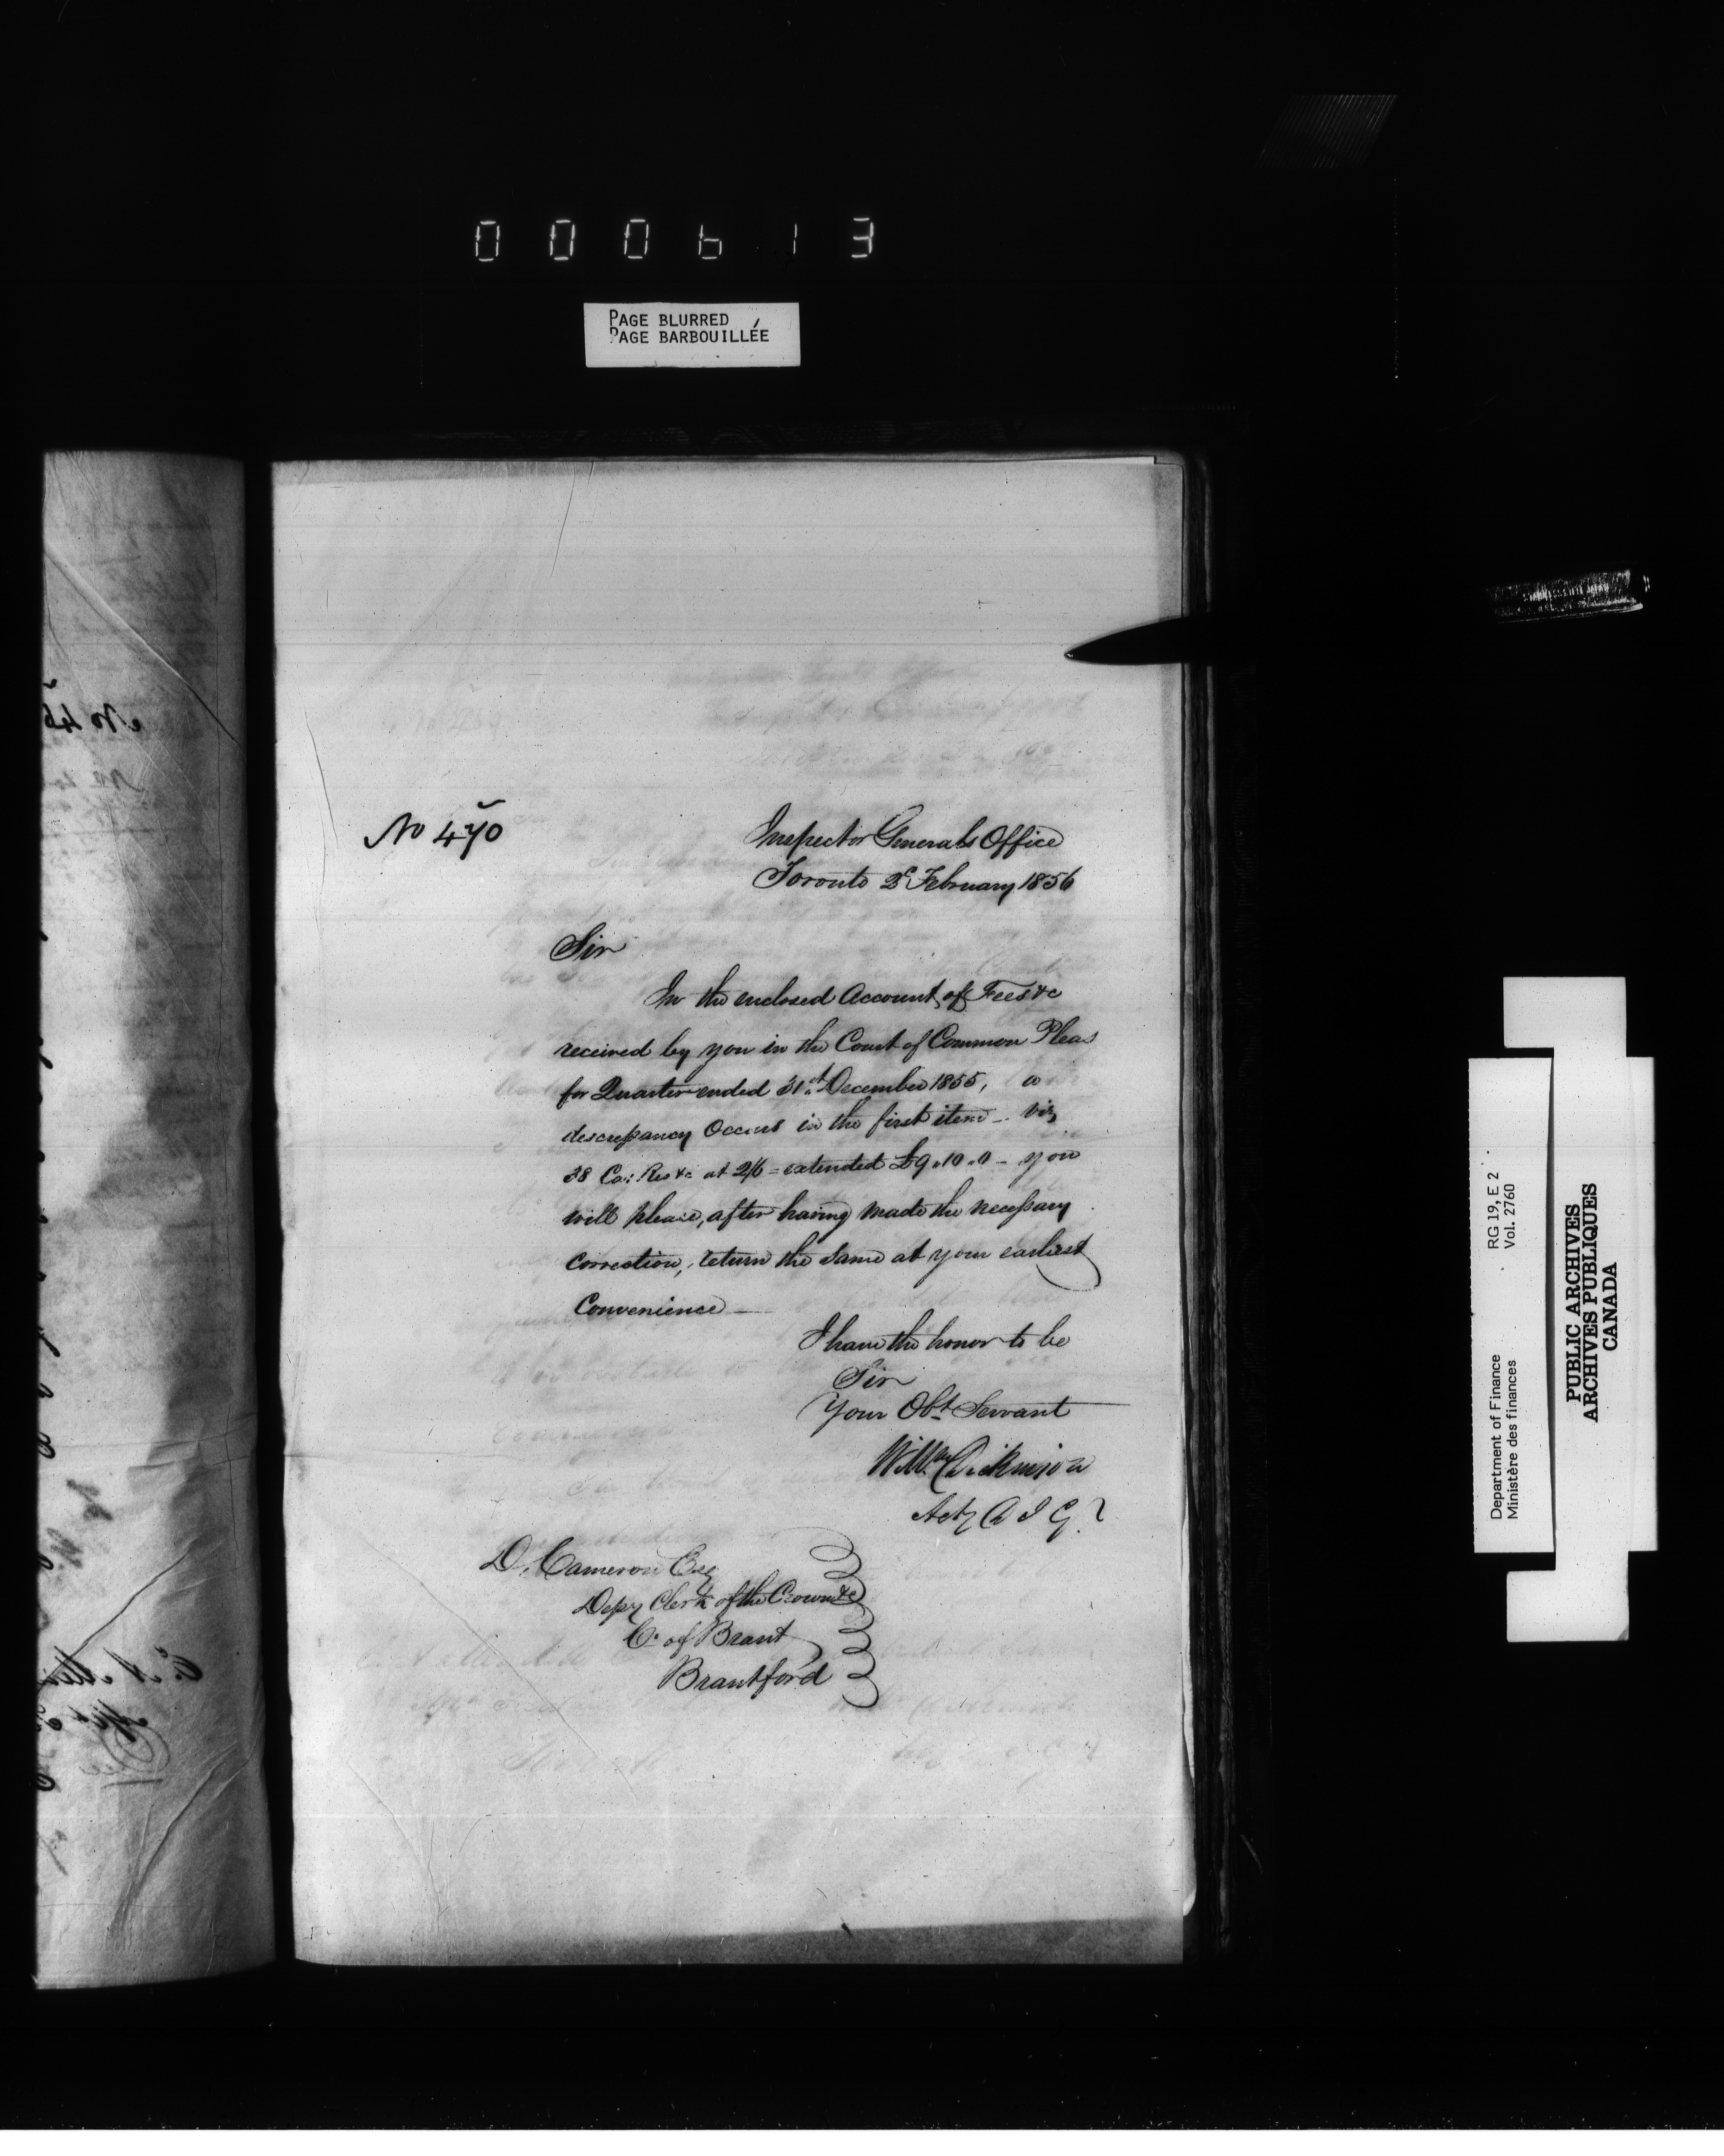 000613
PAGE BLURRED
PAGE BARBOUILLÉE
No 470
Inspector Generals Office
Toronto 2d February 1856
Sir
In the enclosed Account of Fees &c
received by you in the Court of Common Pleas
for Quarter ended 31st December 1855, a
descrepancy Occurs in the first item - viz
38 Ca: Res &c at 2/6 = extended £9.10.0 - you
will please, after having made the necessary
correction, return the same at your earliest
Convenience
I have the honor to be
Sir
Your Obt Servant
Willm Dickinson
Actg A I G
D. Cameron Esq
Depy Clerk of the Crown &c
Co of Brant
Brantford
No 45
Department of Finance
Ministère des finances
RG 19, E 2
Vol. 2760
PUBLIC ARCHIVES
ARCHIVES PUBLIQUES
CANADA